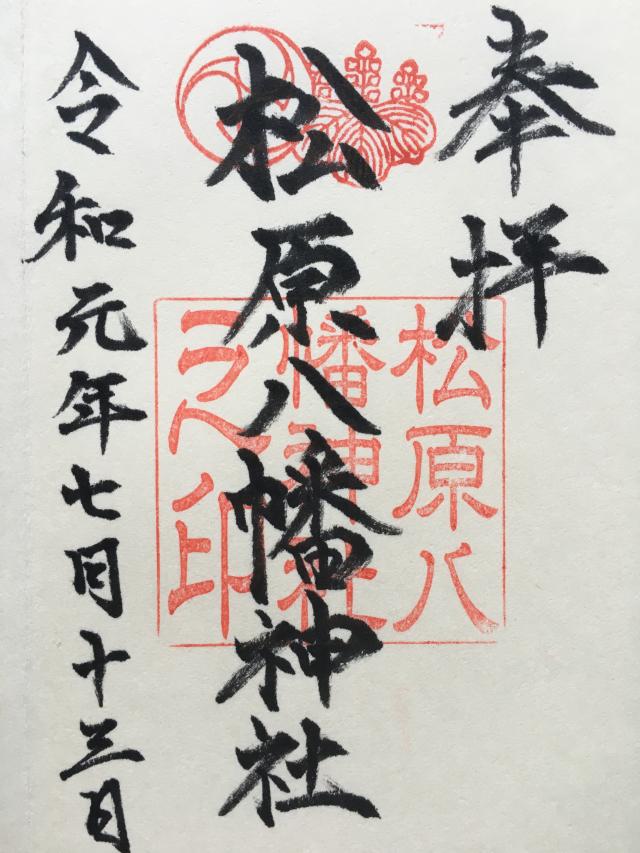 奉拝
松原八幡神社
松原八
幡神社
之印
令和元年七月十三日